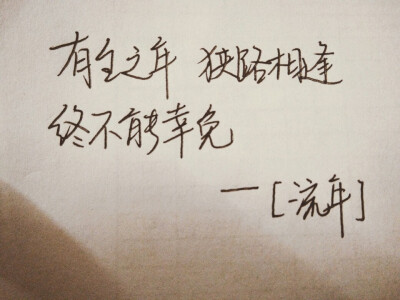 有生之年 狭路相逢
终不能幸免
—[流年]